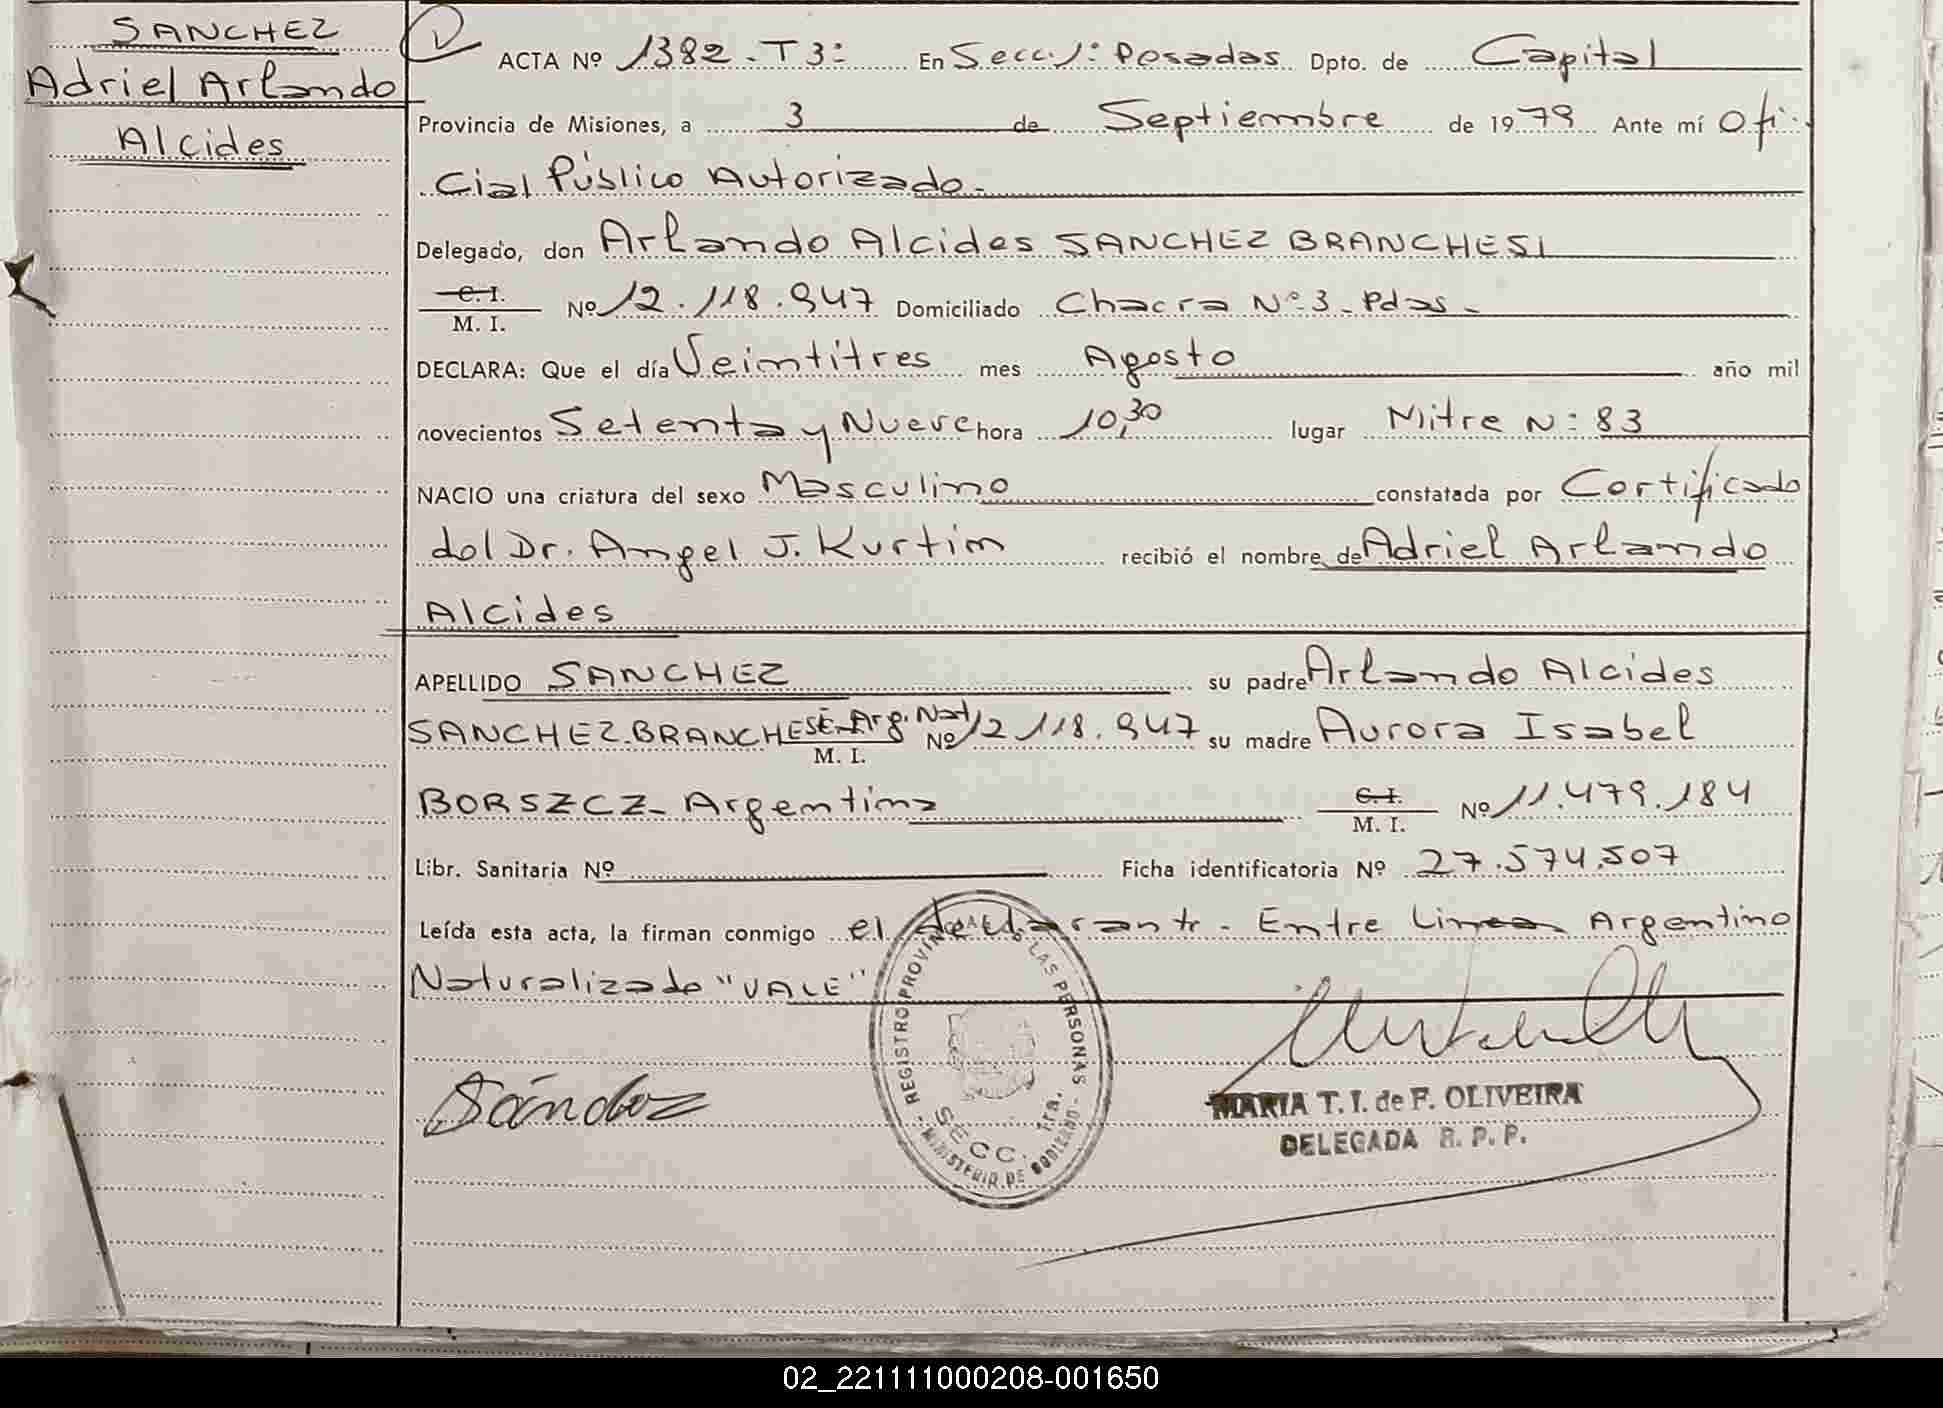 SANCHEZ
Adriel Arlando
Alcides
ACTA Nº 1382-T3: En Secc. 1: Posadas Dpto. de Capital
Provincia de Misiones, a 3 de Septiembre de 1979 Ante mí Ofi-
cial Público Autorizado-
Delegado, don Arlando Alcides SANCHEZ BRANCHESI
C. I.
M. I. Nº 12.118.947 Domiciliado Chacra Nº 3 - Pdas-
DECLARA: Que el día Veintitres mes Agosto año mil
novecientos Setenta y Nueve hora 10,30 lugar Mitre N: 83
NACIO una criatura del sexo Masculino constatada por Certificado
del Dr. Angel J. Kurtin recibió el nombre de Adriel Arlando
Alcides
APELLIDO SANCHEZ su padre Arlando Alcides
SANCHEZ BRANCHESI-Arg. Nat M. I. Nº 12 118.947 su madre Aurora Isabel
BORSZCZ- Argentina C. I. M. I. Nº 11.479.184
Libr. Sanitaria Nº Ficha identificatoria Nº 27.574.507
Leída esta acta, la firman conmigo el declarante - Entre Linea Argentino
Naturalizado "VALE"
Sánchez
REGISTRO PROVINCIAL DE LAS PERSONAS
SECC. 1ra.
MINISTERIO DE GOBIERNO
MARIA T. I. de F. OLIVEIRA
DELEGADA R. P. P.
02_221111000208-001650